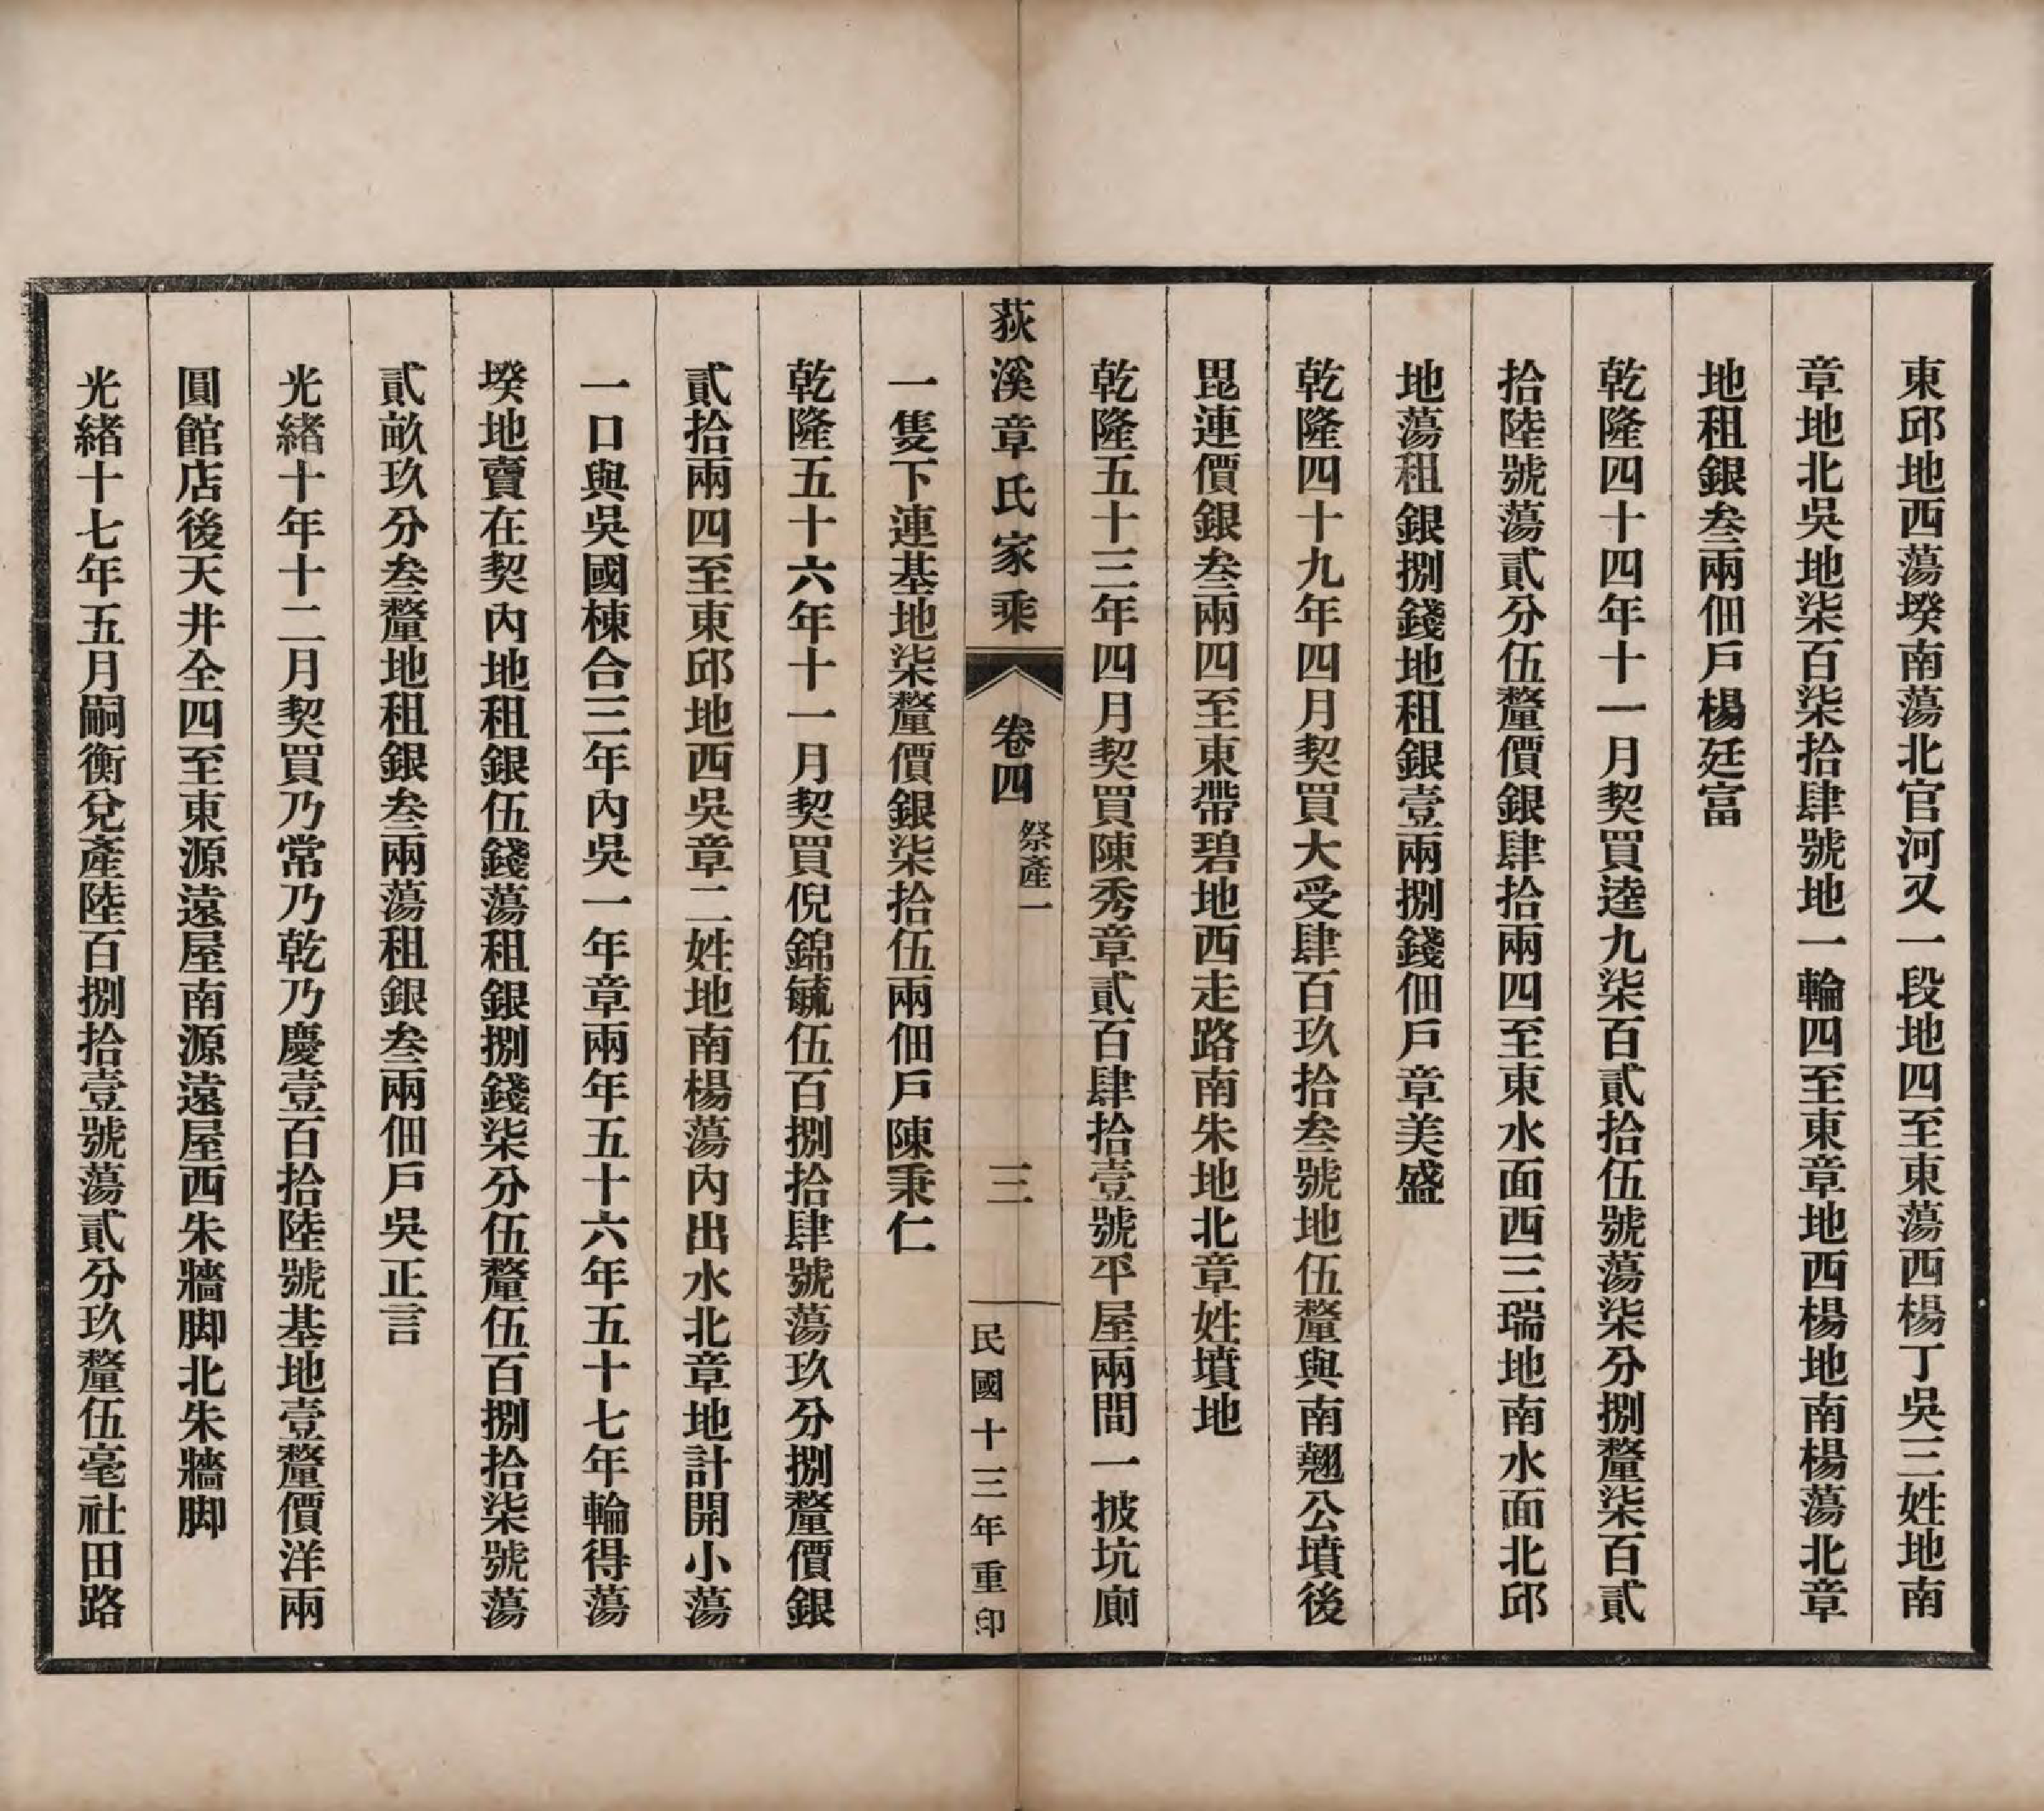 東邱地西蕩堘南蕩北官河又一段地四至東蕩西楊丁吳三姓地南
章地北吳地柒百柒拾肆號地一輪四至東章地西楊地南楊蕩北章
地租銀叁兩佃戶楊廷富
乾隆四十四年十一月契買逵九柒百貳拾伍號蕩柒分捌釐柒百貳
拾陸號蕩貳分伍釐價銀肆拾兩四至東水面西三瑞地南水面北邱
地蕩租銀捌錢地租銀壹兩捌錢佃戶章美盛
乾隆四十九年四月契買大受肆百玖拾叁號地伍釐與南翹公墳後
毘連價銀叁兩四至東帶碧地西走路南朱地北章姓墳地
乾隆五十三年四月契買陳秀章貳百肆拾壹號平屋兩間一披坑廁
荻溪章氏家乘
卷四
祭產一
三
民國十三年重印
一隻下連基地柒釐價銀柒拾伍兩佃戶陳秉仁
乾隆五十六年十一月契買倪錦毓伍百捌拾肆號蕩玖分捌釐價銀
貳拾兩四至東邱地西吳章二姓地南楊蕩內出水北章地計開小蕩
一口與吳國棟合三年內吳一年章兩年五十六年五十七年輪得蕩
堘地賣在契內地租銀伍錢蕩租銀捌錢柒分伍釐伍百捌拾柒號蕩
貳畝玖分叁釐地租銀叁兩蕩租銀叁兩佃戶吳正言
光緒十年十二月契買乃常乃乾乃慶壹百拾陸號基地壹釐價洋兩
圓館店後天井全四至東源遠屋南源遠屋西朱牆脚北朱牆脚
光緒十七年五月嗣衡兌產陸百捌拾壹號蕩貳分玖釐伍毫社田路